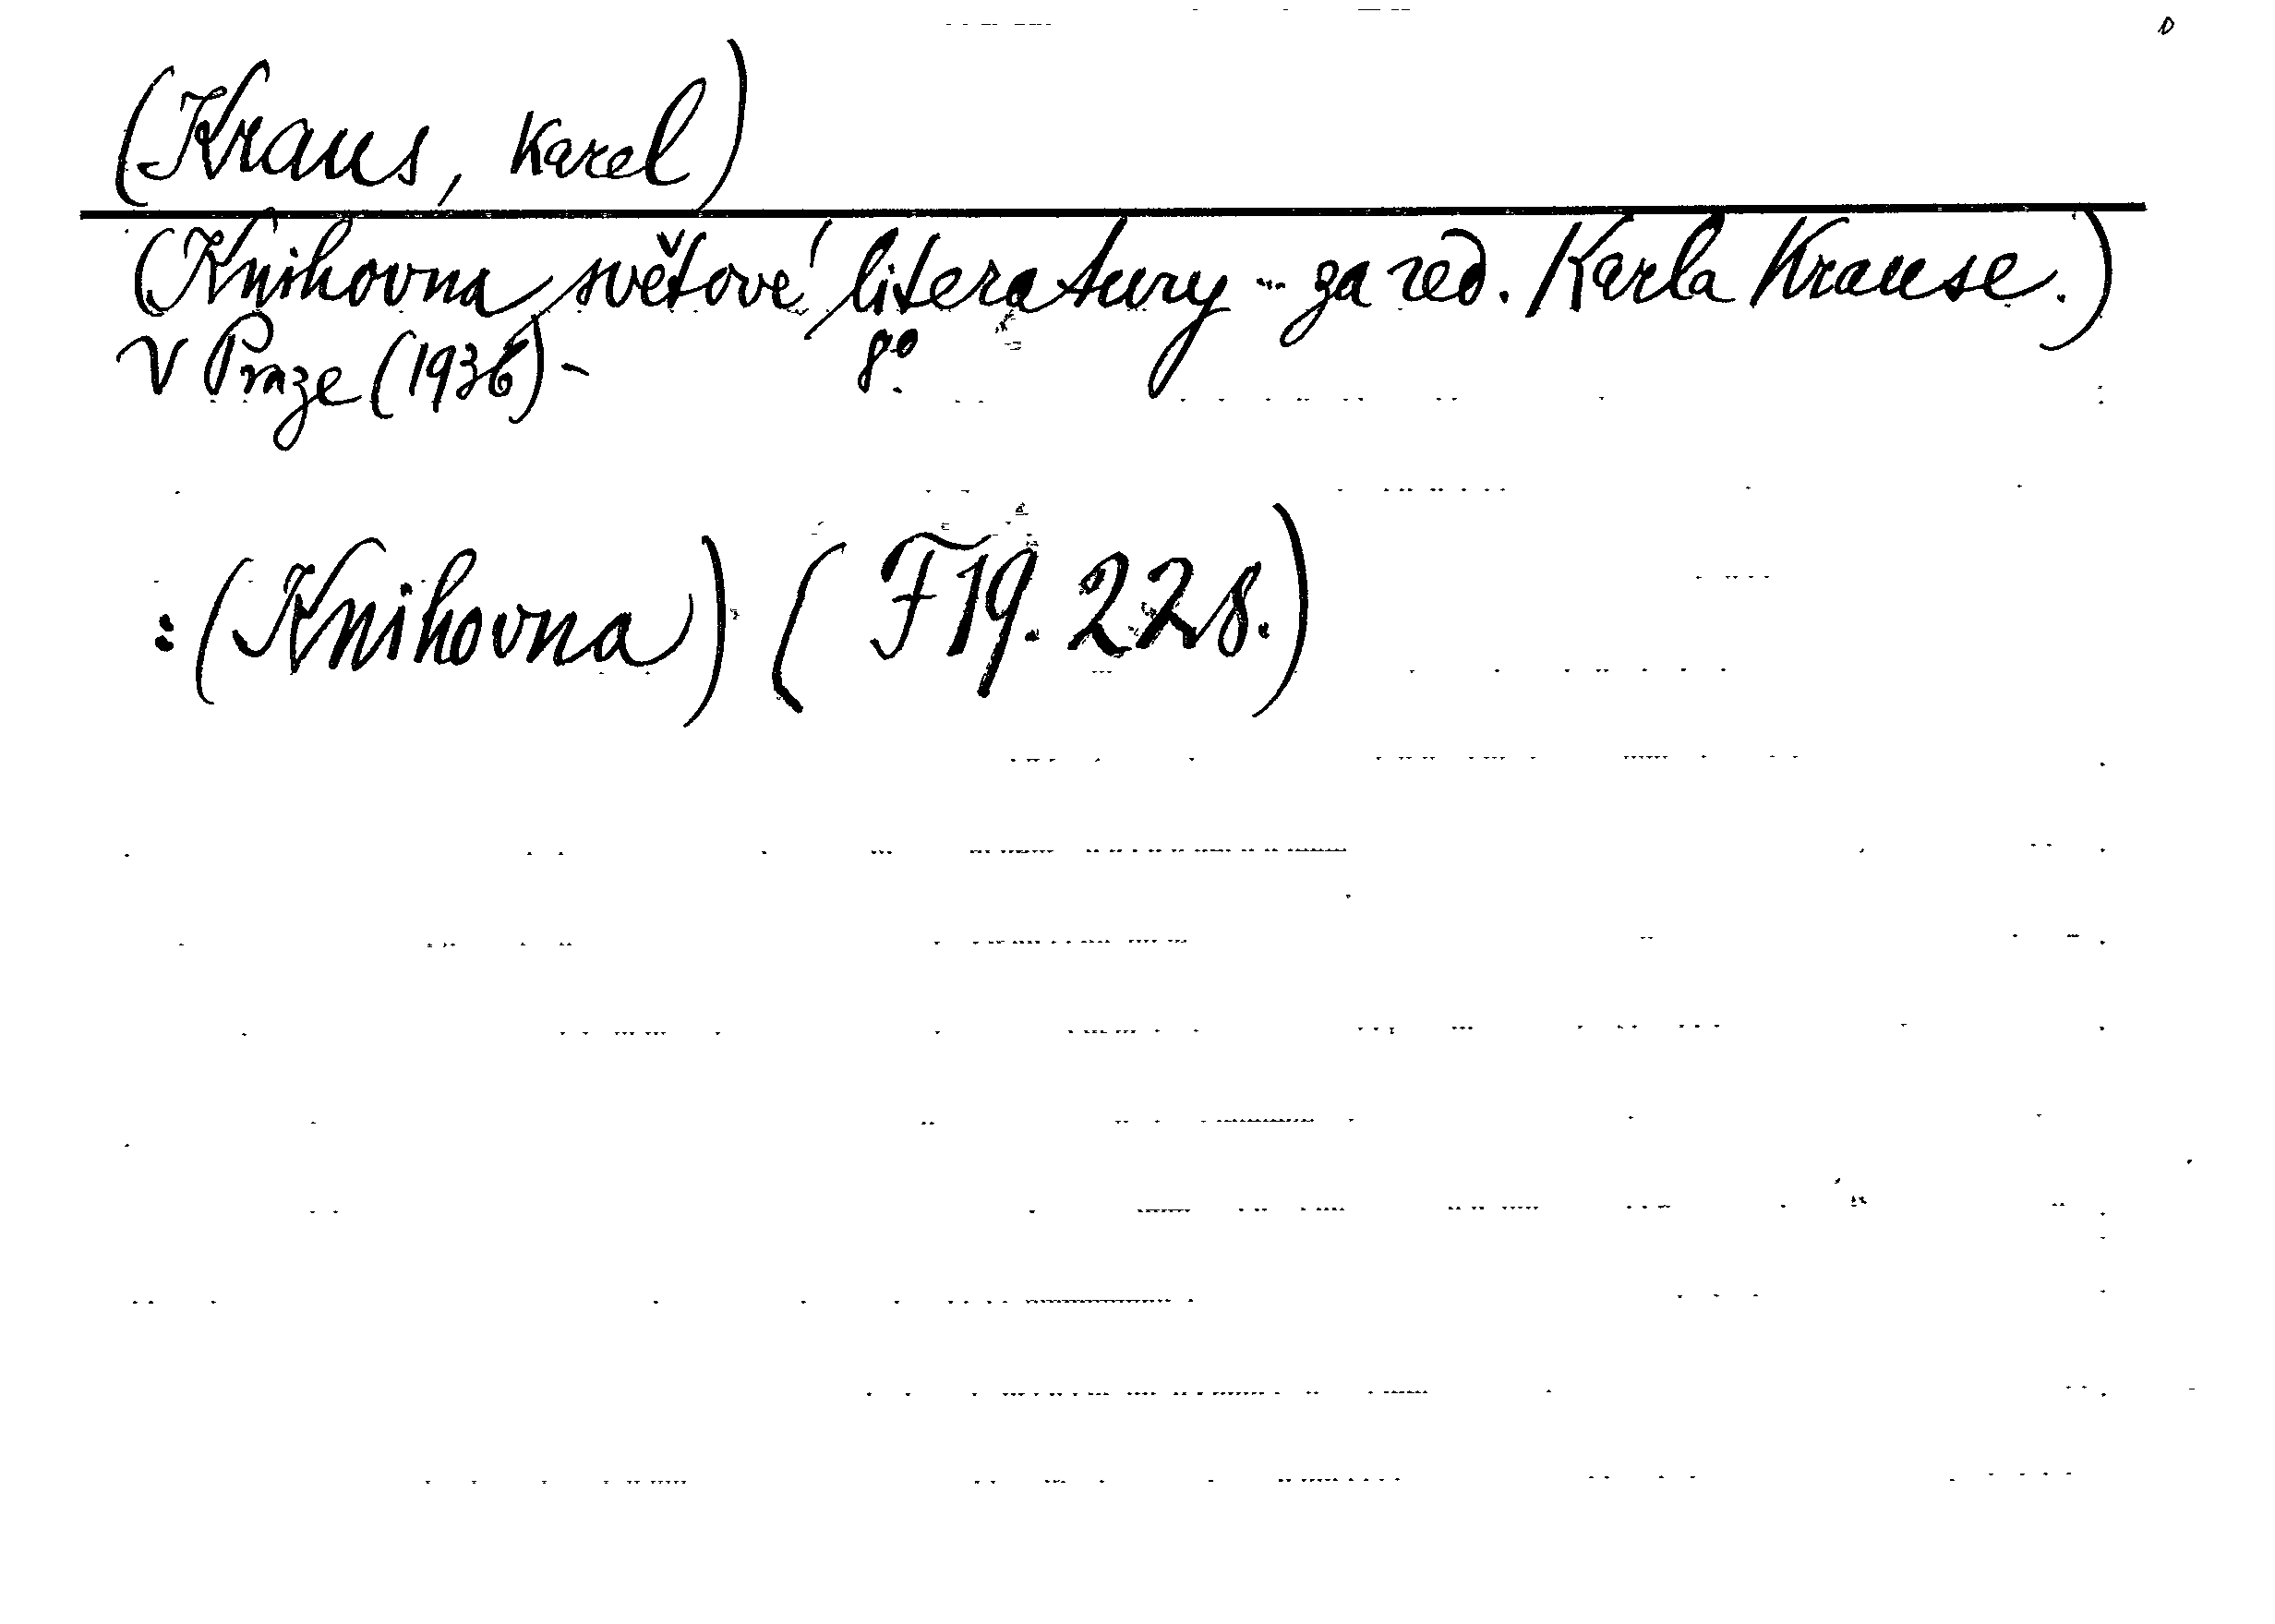 (Kraus, Karel)
(Knihovna světové literatury - za red. Karla Krause.)
V Praze (1936) - 8°.
: (Knihovna) (F 19. 228.)